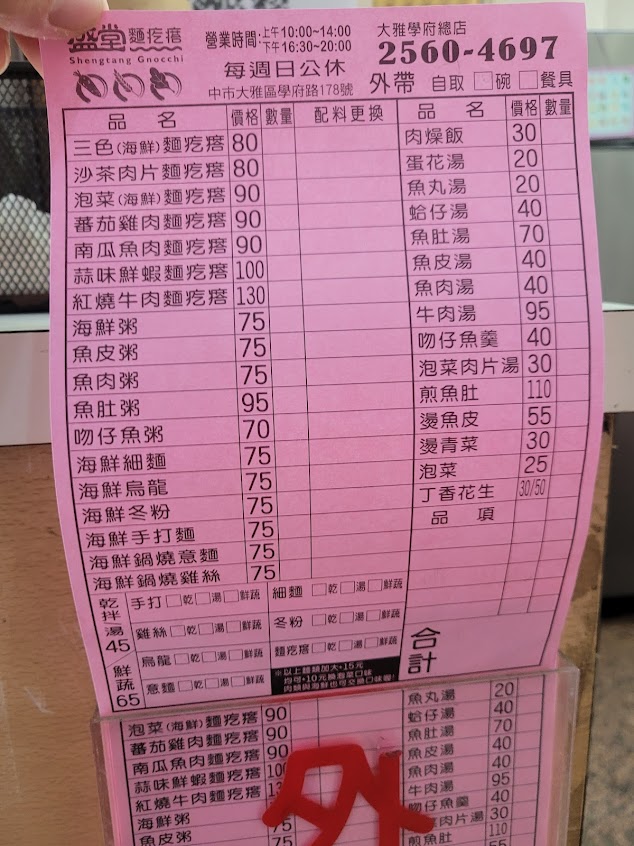 盛堂 麵疙瘩
Shengtang Gnocchi
營業時間:上午10:00~14:00
下午16:30~20:00
每週日公休
中市大雅區學府路178號
大雅學府總店
2560-4697
外帶 自取 □碗 □餐具
品名 價格 數量 配料更換
三色(海鮮)麵疙瘩 80
沙茶肉片麵疙瘩 80
泡菜(海鮮)麵疙瘩 90
蕃茄雞肉麵疙瘩 90
南瓜魚肉麵疙瘩 90
蒜味鮮蝦麵疙瘩 100
紅燒牛肉麵疙瘩 130
海鮮粥 75
魚皮粥 75
魚肉粥 75
魚肚粥 95
吻仔魚粥 70
海鮮細麵 75
海鮮烏龍 75
海鮮冬粉 75
海鮮手打麵 75
海鮮鍋燒意麵 75
海鮮鍋燒雞絲 75
品名 價格 數量
肉燥飯 30
蛋花湯 20
魚丸湯 20
蛤仔湯 40
魚肚湯 70
魚皮湯 40
魚肉湯 40
牛肉湯 95
吻仔魚羹 40
泡菜肉片湯 30
煎魚肚 110
燙魚皮 55
燙青菜 30
泡菜 25
丁香花生 30/50
品項
乾拌湯45
鮮蔬65
手打 □乾 □湯 □鮮蔬
雞絲 □乾 □湯 □鮮蔬
烏龍 □乾 □湯 □鮮蔬
意麵 □乾 □湯 □鮮蔬
細麵 □乾 □湯 □鮮蔬
冬粉 □乾 □湯 □鮮蔬
麵疙瘩 □乾 □湯 □鮮蔬
※以上麵類加大+15元
均可+10元換泡菜口味
肉類與海鮮也可交換口味喔!
合計
泡菜(海鮮)麵疙瘩 90
蕃茄雞肉麵疙瘩 90
南瓜魚肉麵疙瘩 90
蒜味鮮蝦麵疙瘩
紅燒牛肉麵疙瘩
海鮮粥 75
魚皮粥 75
魚丸湯 20
蛤仔湯 40
魚肚湯 70
魚皮湯 40
魚肉湯 40
牛肉湯 95
吻仔魚羹 40
肉片湯 30
煎魚肚 110
外